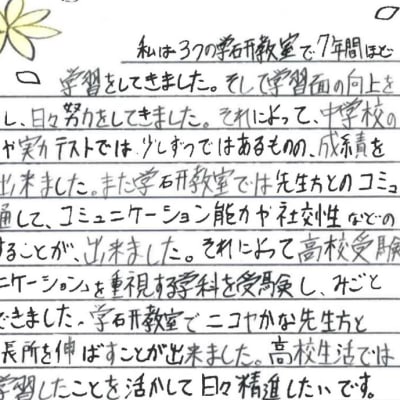 私は3つの学研教室で7年間ほど
学習をしてきました。そして学習面の向上を
し、日々努力をしてきました。それによって、中学校の
や実力テストでは、少しずつではあるものの、成績を
出来ました。また学研教室では先生方とのコミュ
通して、コミュニケーション能力や社交性などの
することが、出来ました。それによって高校受験
ニケーション」を重視する学科を受験し、みごと
できました。学研教室でニコヤかな先生方と
長所を伸ばすことが出来ました。高校生活では
学習したことを活かして日々精進したいです。